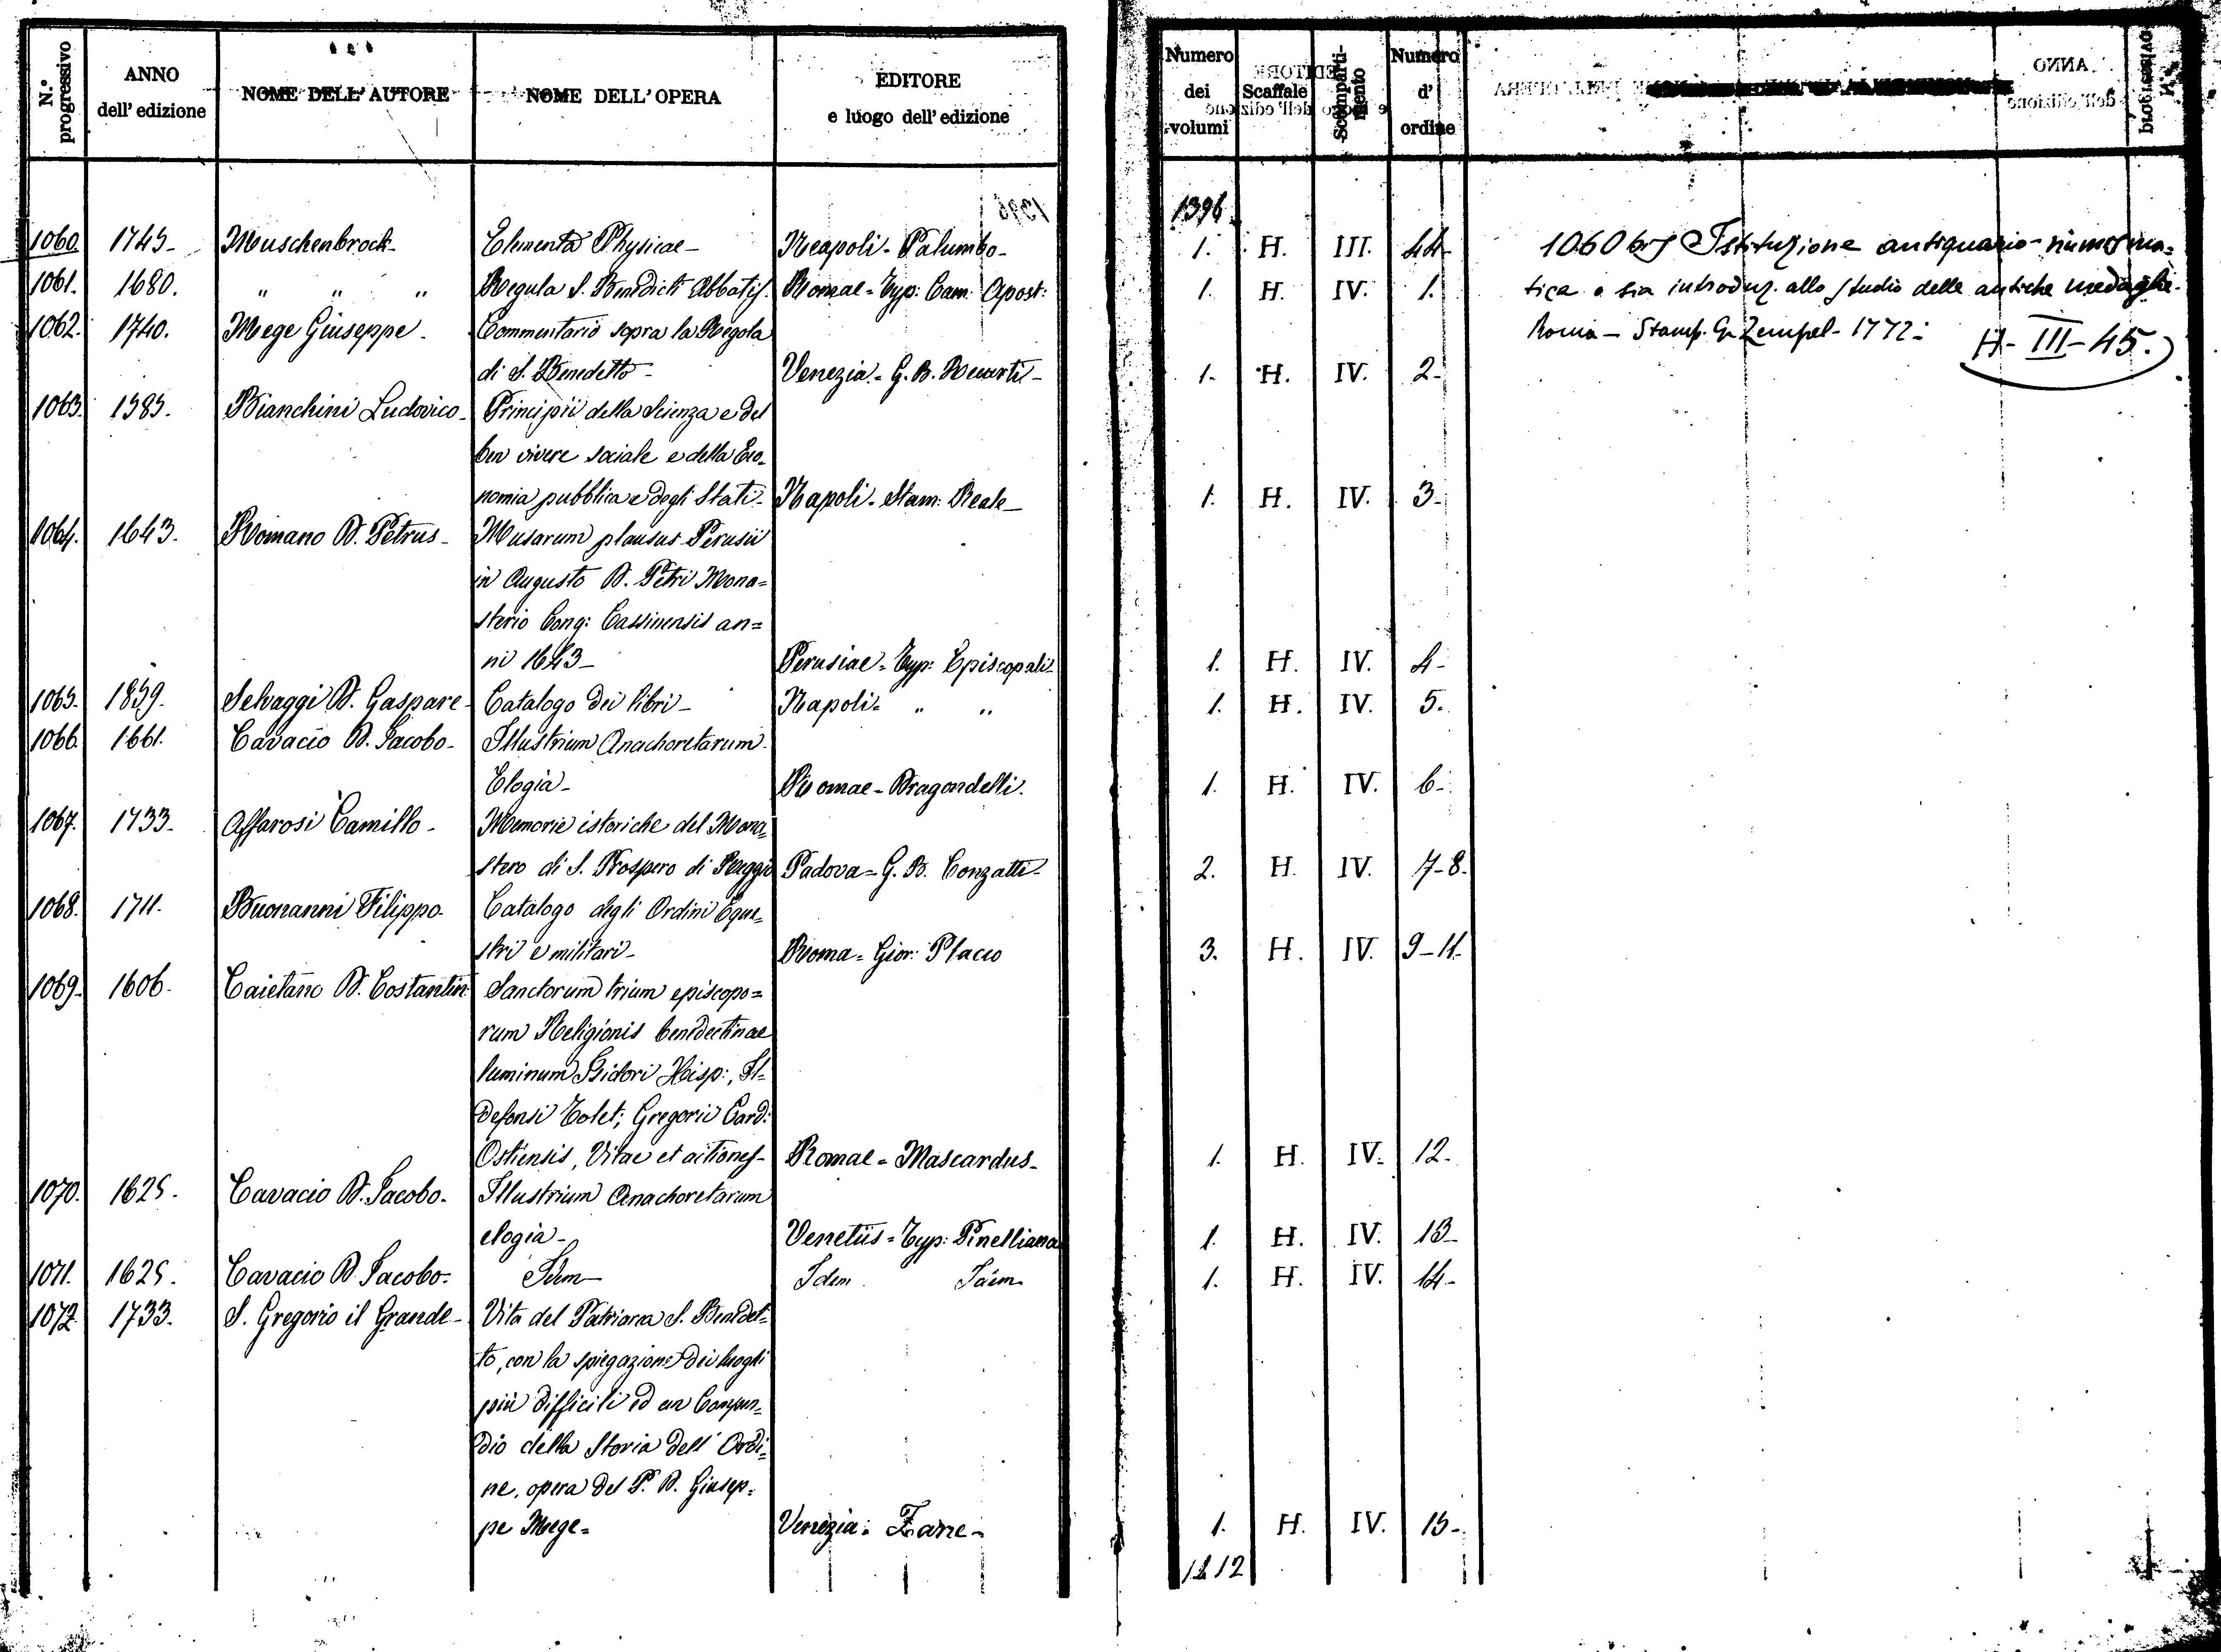 N.° progressivo | ANNO dell' edizione | NOME DELL' AUTORE | NOME DELL' OPERA | EDITORE e luogo dell' edizione | Numero dei volumi | Scaffale | Scomparti-mento | Numero d' ordine
1396
1060. 1745- Muschenbrock- Elementa Physicae- Neapoli- Palumbo- 1. H. III. 44-
1061. 1680. " " " Regula S. Benedicti Abbatis. Romae- Typ: Cam: Apost: 1. H. IV. 1.
1062. 1740. Mege Giuseppe- Commentario sopra la Regola
di S. Benedetto- Venezia- G. B. Recurti- 1. H. IV. 2-
1063. 1585. Bianchini Ludovico- Principii della Scienza e del
ben vivere sociale e della Eco-
nomia pubblica e degli Stati- Napoli- Stam: Reale- 1. H. IV. 3-
1064. 1643. Romano D. Petrus- Musarum plausus Perusii
in Augusto D. Petri Mona=
sterio Cong: Cassinensis an=
ni 1643- Perusiae- Typ: Episcopali- 1. H. IV. 4-
1065. 1859. Selvaggi D. Gaspare- Catalogo dei libri- Napoli- " " 1. H. IV. 5.
1066. 1661. Cavacio D. Jacobo- Illustrium Anachoretarum
Elogia- Romae- Dragondelli. 1. H. IV. 6-
1067. 1733. Affarosi Camillo- Memorie istoriche del Mona=
stero di S. Prospero di Reggio Padova- G. B. Conzatti- 2. H. IV. 7-8.
1068. 1711. Buonanni Filippo- Catalogo degli Ordini Eque=
stri e militari- Roma- Gior: Placco 3. H. IV. 9-11-
1069. 1606. Caietano D. Costantin: Sanctorum trium episcopo=
rum Religionis benedectinae
luminum Isidori Hisp:, Il=
defonsi Tolet; Gregorii Card:
Ostiensis, Vitae et actiones- Romae- Mascardus- 1. H. IV. 12-
1070. 1625. Cavacio D. Jacobo. Illustrium Anachoretarum
elogia- Venetiis- Typ: Pinelliana 1. H. IV. 13-
1071. 1625. Cavacio D. Jacobo- Idem- Idem Idem 1. H. IV. 14-
1072. 1733. S. Gregorio il Grande- Vita del Patriarca S. Benedet=
to, con la spiegazione dei luoghi
più difficili ed un Compen=
dio della Storia dell' Ordi=
ne, opera del P. D. Giusep=
pe Mege= Venezia- Zane- 1. H. IV. 15-
1412
1060 bis Istituzione antiquario-numisma=
tica o sia introduz. allo studio delle antiche medaglie.
Roma- Stamp. G. Zempel- 1772-
H- III- 45.